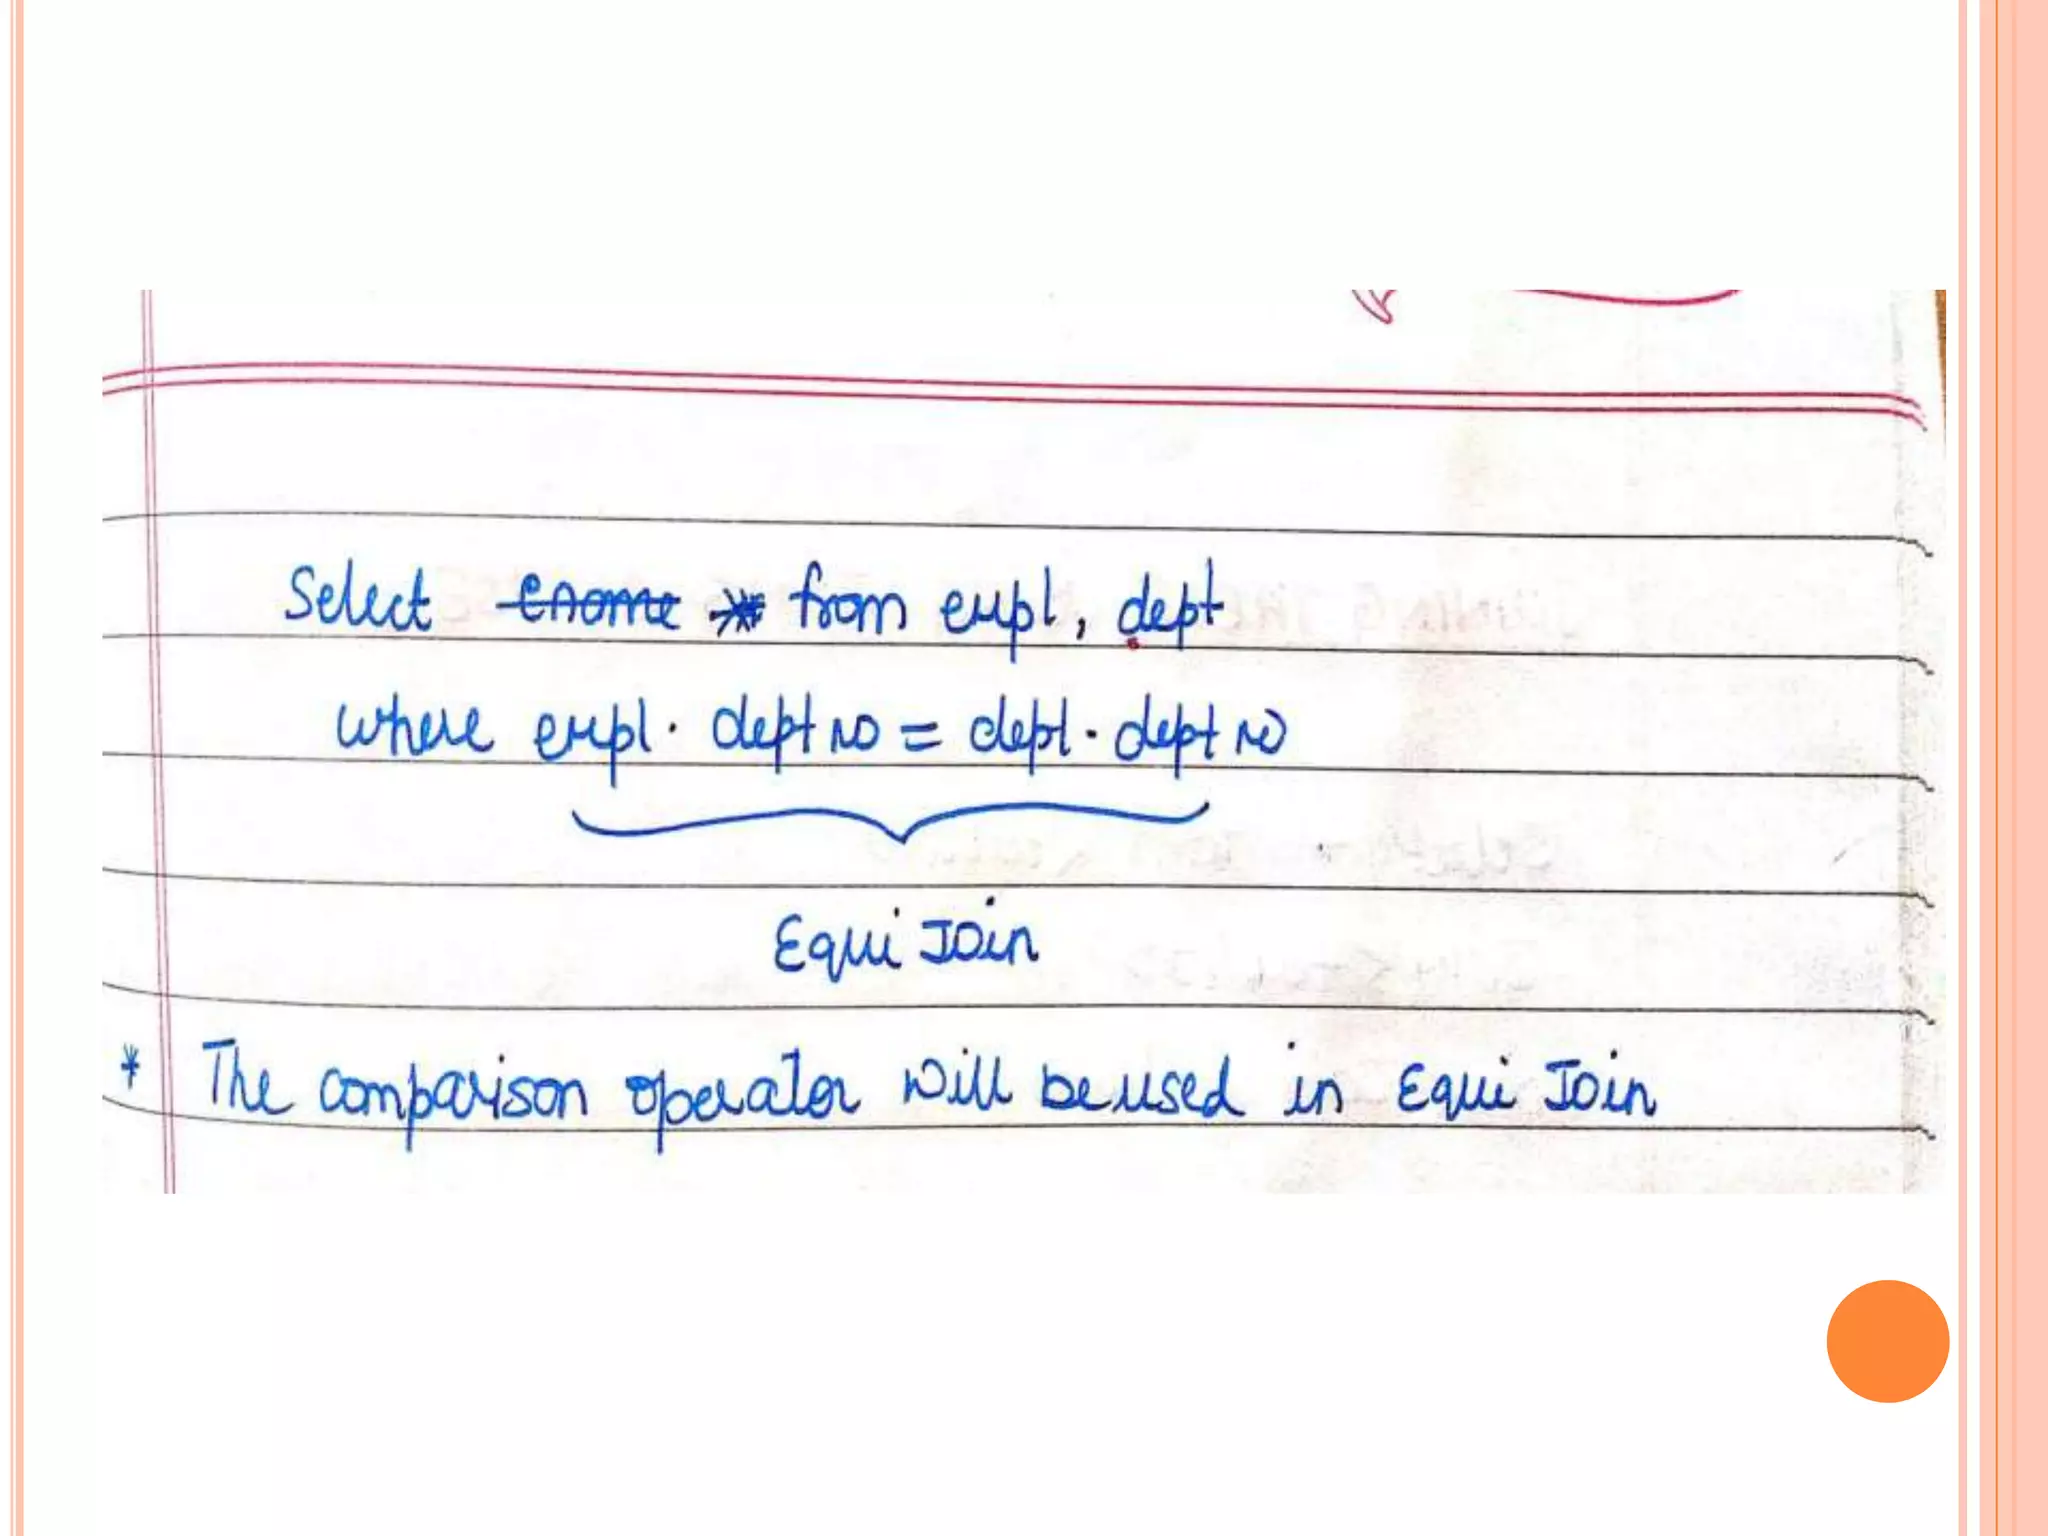 Select ename * from empl, dept
where empl. deptno = dept. deptno
Equi Join
* The comparison operator will be used in Equi Join